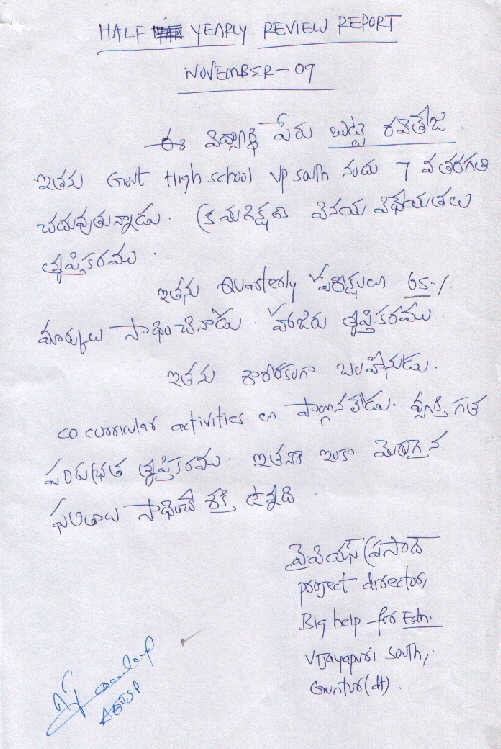 HALF YEARLY REVIEW REPORT
NOVEMBER-09
ఈ విద్యార్థి పేరు బుట్టి రవితేజ
ఇతను Govt High school VP South నందు 7 వ తరగతి
చదువుతున్నాడు. క్రమశిక్షణ వినయ విధేయతలు
తృప్తికరము.
ఇతను Quarterly పరీక్షలలో 65%
మార్కులు సాధించినాడు. హాజరు తృప్తికరము.
ఇతను శారీరకంగా బలహీనుడు.
co curricular activities లో పాల్గొనలేడు. వ్యక్తిగత
పరిశుభ్రత తృప్తికరము. ఇతనికి ఇంకా మెరుగైన
ఫలితాలు సాధించే శక్తి ఉన్నది.
వైపియస్ ప్రసాద్
project director,
Big help - for Edn.
Vijayapuri South,
Guntur (dt).